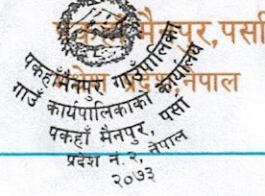 पकहाँ मैनपुर, पर्सा
प्रदेश, नेपाल
पकहाँमैनपुर गाउँपालिका
गाउँ कार्यपालिकाको कार्यालय
पकहाँ मैनपुर, पर्सा
प्रदेश नं. २, नेपाल
२०७३